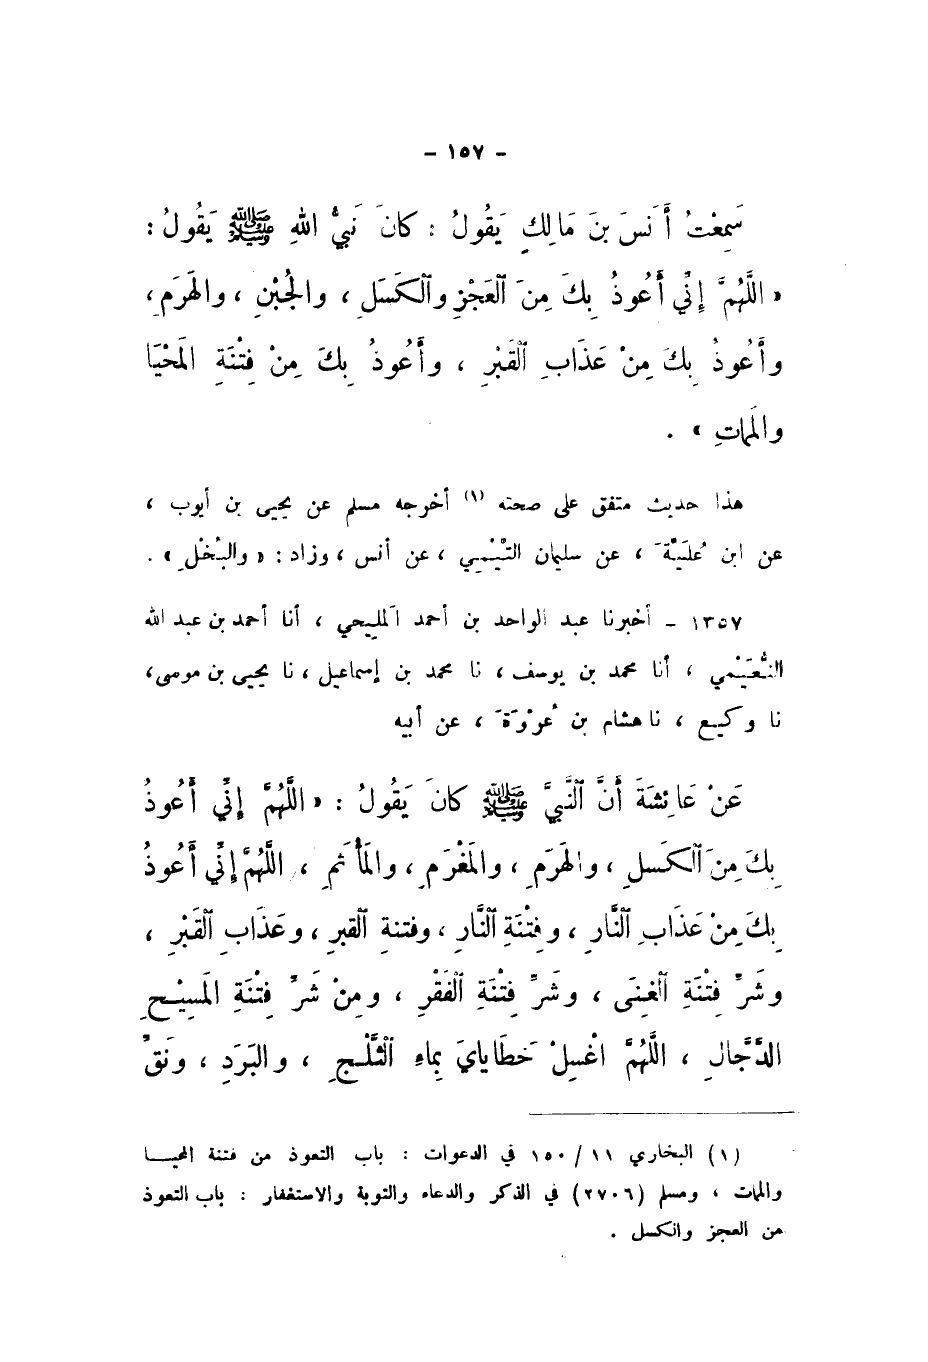 - ١٥٧ -
سَمِعْتُ أَنَسَ بنَ مَالِكٍ يَقُولُ : كانَ نَبِيُّ اللهِ ﷺ يَقُولُ :
« اللَّهُمَّ إنِّي أَعُوذُ بِكَ مِنَ ٱلعَجْزِ وٱلكَسَلِ ، والجُبْنِ ، والهَرَمِ ،
وأَعُوذُ بِكَ مِنْ عَذَابِ ٱلقَبْرِ ، وأَعُوذُ بِكَ مِنْ فِتْنَةِ المَحْيَا
والمَماتِ » .
هذا حديث متفق على صحته (١) أخرجه مسلم عن يحيى بن أيوب ،
عن ابن عُلَيَّةَ ، عن سليمان التَّيْمِي ، عن أنس ، وزاد : « والبُخْلِ » .
١٣٥٧ - أخبرنا عبد الواحد بن أحمد المَلِيحي ، أنا أحمد بن عبد الله
النُّعَيْمي ، أنا محمد بن يوسف ، نا محمد بن إسماعيل ، نا يحيى بن موسى ،
نا وكيع ، نا هشام بن عُرْوَةَ ، عن أبيه
عَنْ عَائِشَةَ أَنَّ ٱلنَّبِيَّ ﷺ كانَ يَقُولُ : « اللَّهُمَّ إنِّي أَعُوذُ
بِكَ مِنَ ٱلكَسَلِ ، والهَرَمِ ، والمَغْرَمِ ، والمَأْثَمِ ، اللَّهُمَّ إنِّي أَعُوذُ
بِكَ مِنْ عَذَابِ ٱلنَّارِ ، وفِتْنَةِ ٱلنَّارِ ، وفتنةِ ٱلقبرِ ، وعَذَابِ ٱلقَبْرِ ،
وشَرِّ فِتْنَةِ ٱلغِنَى ، وشَرِّ فِتْنَةِ ٱلفَقْرِ ، ومِنْ شَرِّ فِتْنَةِ المَسِيْحِ
الدَّجَّالِ ، اللَّهُمَّ اغْسِلْ خَطَايايَ بِماءِ ٱلثَّلْجِ ، والبَرَدِ ، ونَقِّ
(١) البخاري ١١/ ١٥٠ في الدعوات : باب التعوذ من فتنة المحيا
والممات ، ومسلم (٢٧٠٦) في الذكر والدعاء والتوبة والاستغفار : باب التعوذ
من العجز والكسل .